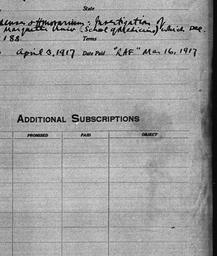 State
Honorarium: Investigation of
Marquette Univ (School of Medicine) which see
188 Terms
April 3, 1917 Date Paid "RAF" Mar 16, 1917
ADDITIONAL SUBSCRIPTIONS
PROMISED PAID OBJECT